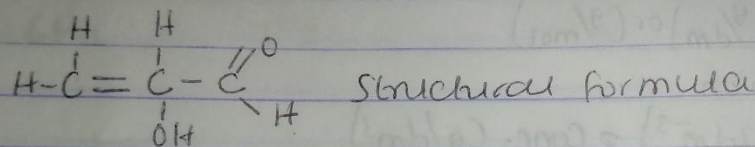 H H O
H-C=C-C
OH H
Structural formula